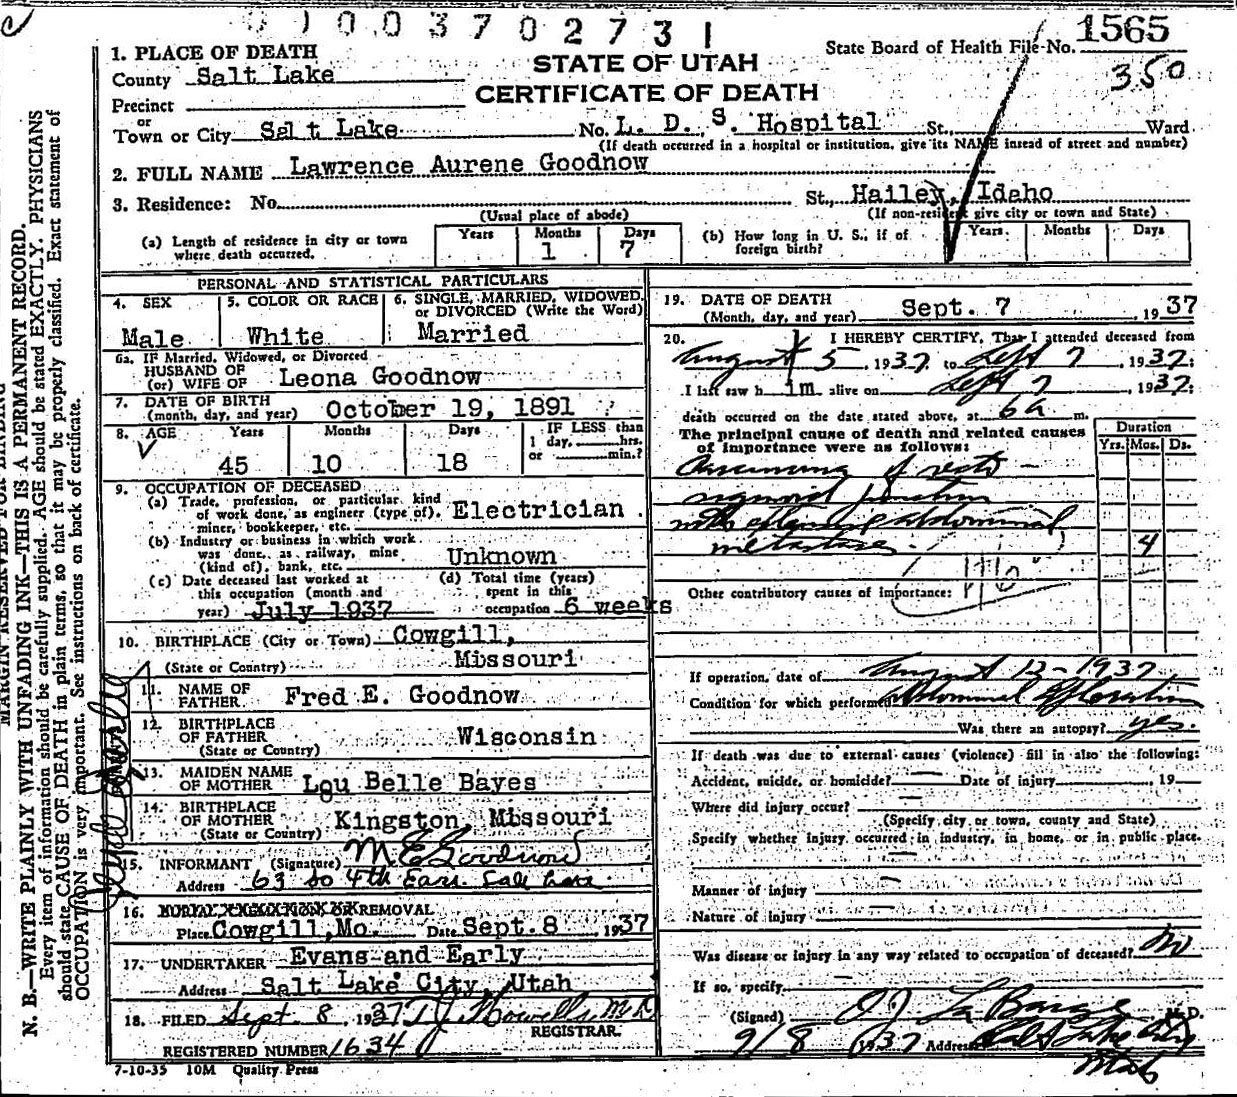 0100370 2731
1565
State Board of Health File No.
350
1. PLACE OF DEATH
STATE OF UTAH
County Salt Lake
CERTIFICATE OF DEATH
Precinct
or
Town or City Salt Lake No. L. D. S. Hospital St., Ward
(If death occurred in a hospital or institution, give its NAME instead of street and number)
2. FULL NAME Lawrence Aurene Goodnow
3. Residence: No. St., Hailey, Idaho
(Usual place of abode) (If non-resident give city or town and State)
(a) Length of residence in city or town where death occurred. Years Months 1 Days 7
(b) How long in U. S., if of foreign birth? Years Months Days
PERSONAL AND STATISTICAL PARTICULARS
4. SEX 5. COLOR OR RACE 6. SINGLE, MARRIED, WIDOWED,
or DIVORCED (Write the Word)
Male White Married
6a. IF Married, Widowed, or Divorced
HUSBAND OF
(or) WIFE OF Leona Goodnow
7. DATE OF BIRTH
(month, day, and year) October 19, 1891
8. AGE Years Months Days IF LESS than
1 day, hrs.
or min.?
45 10 18
9. OCCUPATION OF DECEASED
(a) Trade, profession, or particular kind
of work done, as engineer (type of), Electrician
miner, bookkeeper, etc.
(b) Industry or business in which work
was done, as railway, mine
(kind of), bank, etc. Unknown
(c) Date deceased last worked at
this occupation (month and
year) July 1937
(d) Total time (years)
spent in this
occupation 6 weeks
10. BIRTHPLACE (City or Town) Cowgill,
(State or Country) Missouri
11. NAME OF
FATHER Fred E. Goodnow
12. BIRTHPLACE
OF FATHER
(State or Country) Wisconsin
13. MAIDEN NAME
OF MOTHER Lou Belle Bayes
14. BIRTHPLACE
OF MOTHER
(State or Country) Kingston, Missouri
15. INFORMANT (Signature) M E Goodnow
Address 63 so 4th East Salt Lake
16. BURIAL, CREMATION OR REMOVAL
Place Cowgill, Mo. Date Sept. 8 1937
17. UNDERTAKER Evans and Early
Address Salt Lake City, Utah
18. FILED Sept. 8, 1937 T J Howells M D
REGISTRAR.
REGISTERED NUMBER 1634
7-10-35 10M Quality Press
19. DATE OF DEATH
(Month, day, and year) Sept. 7 1937
20. I HEREBY CERTIFY, That I attended deceased from
August 5, 1937, to Sept 7, 1937;
I last saw him alive on Sept 7, 1937;
death occurred on the date stated above, at 6a m.
The principal cause of death and related causes
of importance were as follows:
Duration
Yrs. Mos. Ds.
Carcinoma of recto-
sigmoid junction
with extensive abdominal
metastases 4
Other contributory causes of importance:
If operation, date of August 12-1937
Condition for which performed Abdominal Exploration
Was there an autopsy? yes.
If death was due to external causes (violence) fill in also the following:
Accident, suicide, or homicide? Date of injury 19
Where did injury occur?
(Specify city or town, county and State)
Specify whether injury occurred in industry, in home, or in public place.
Manner of injury
Nature of injury
Was disease or injury in any way related to occupation of deceased? No
If so, specify
(Signed) O J La Barge M. D.
9/8 1937 Address Salt Lake City
Utah
MARGIN RESERVED FOR BINDING
N. B.—WRITE PLAINLY WITH UNFADING INK—THIS IS A PERMANENT RECORD.
Every item of information should be carefully supplied. AGE should be stated EXACTLY. PHYSICIANS
should state CAUSE OF DEATH in plain terms, so that it may be properly classified. Exact statement of
OCCUPATION is very important. See instructions on back of certificate.